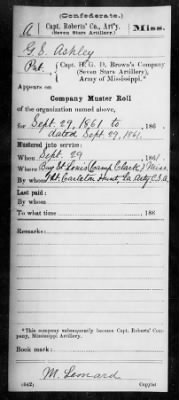 (Confederate.)
A | Capt. Roberts' Co., Art'y. (Seven Stars Artillery.) | Miss.
G. E. Ashley
Pvt., Capt. H. G. D. Brown's Company
(Seven Stars Artillery),
Army of Mississippi.*
Appears on
Company Muster Roll
of the organization named above,
for Sept. 29, 1861 to, 186 .
dated Sept. 29, 1861.
Mustered into service:
When Sept. 29, 1861.
Where Bay St. Louis (Camp Clark) Miss.
By whom 1 Lt. Carleton Hunt, La Arty C.S.A.
Last paid:
By whom
To what time , 186 .
Remarks:
*This company subsequently became Capt. Roberts' Company, Mississippi Artillery.
Book mark:
M. Leonard
(642) Copyist.